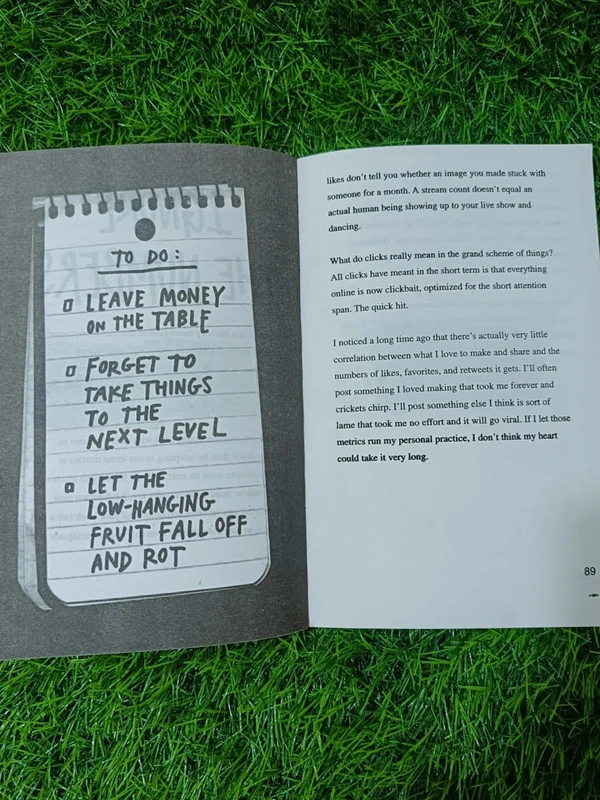 TO DO:
LEAVE MONEY
ON THE TABLE
FORGET TO
TAKE THINGS
TO THE
NEXT LEVEL
LET THE
LOW-HANGING
FRUIT FALL OFF
AND ROT
likes don't tell you whether an image you made stuck with
someone for a month. A stream count doesn't equal an
actual human being showing up to your live show and
dancing.
What do clicks really mean in the grand scheme of things?
All clicks have meant in the short term is that everything
online is now clickbait, optimized for the short attention
span. The quick hit.
I noticed a long time ago that there's actually very little
correlation between what I love to make and share and the
numbers of likes, favorites, and retweets it gets. I'll often
post something I loved making that took me forever and
crickets chirp. I'll post something else I think is sort of
lame that took me no effort and it will go viral. If I let those
metrics run my personal practice, I don't think my heart
could take it very long.
89